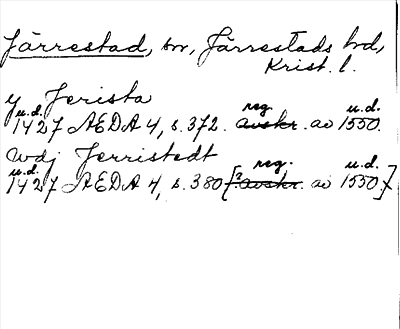 Järrestad, sn, Järrestads hd,
Krist. l.
y Jerista
u.d. reg. u.d.
1427 AEDA 4, s. 372. avskr. av 1550.
wdj Jerristedt
u.d. reg. u.d.
1427 AEDA 4, s. 380 [? avskr. av 1550.]